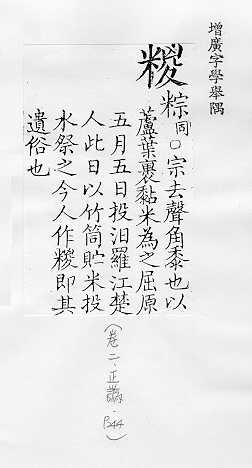 增廣字學舉隅
糉
粽同○宗去聲角黍也以
蘆葉裹黏米為之屈原
五月五日投汨羅江楚
人此日以竹筒貯米投
水祭之今人作糉即其
遺俗也
(卷二．正譌．P244)